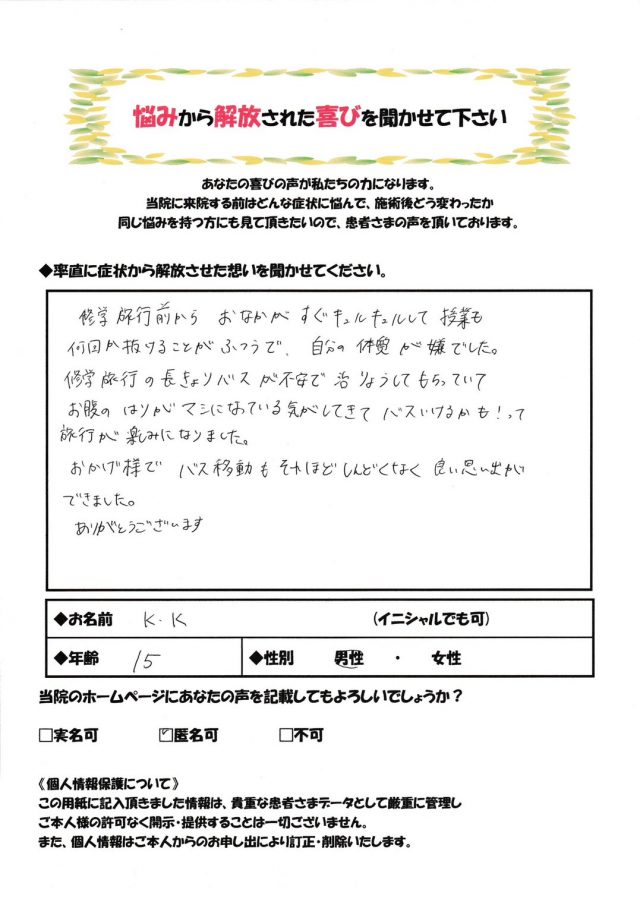 悩みから解放された喜びを聞かせて下さい
あなたの喜びの声が私たちの力になります。
当院に来院する前はどんな症状に悩んで、施術後どう変わったか
同じ悩みを持つ方にも見て頂きたいので、患者さまの声を頂いております。
◆率直に症状から解放させた想いを聞かせてください。
修学旅行前から おなかが すぐキュルキュルして 授業も
何回か抜けることがふつうで、自分の体質が嫌でした。
修学旅行の長きょりバスが不安で治りょうしてもらっていて
お腹のはりがマシになっている気がしてきて バスいけるかも!って
旅行が楽しみになりました。
おかげ様で バス移動も それほどしんどくなく 良い思い出が
できました。
ありがとうございます
◆お名前 K.K (イニシャルでも可)
◆年齢 15 ◆性別 男性 ・ 女性
当院のホームページにあなたの声を記載してもよろしいでしょうか?
□実名可 ☑匿名可 □不可
《個人情報保護について》
この用紙に記入頂きました情報は、貴重な患者さまデータとして厳重に管理し
ご本人様の許可なく開示・提供することは一切ございません。
また、個人情報はご本人からのお申し出により訂正・削除いたします。